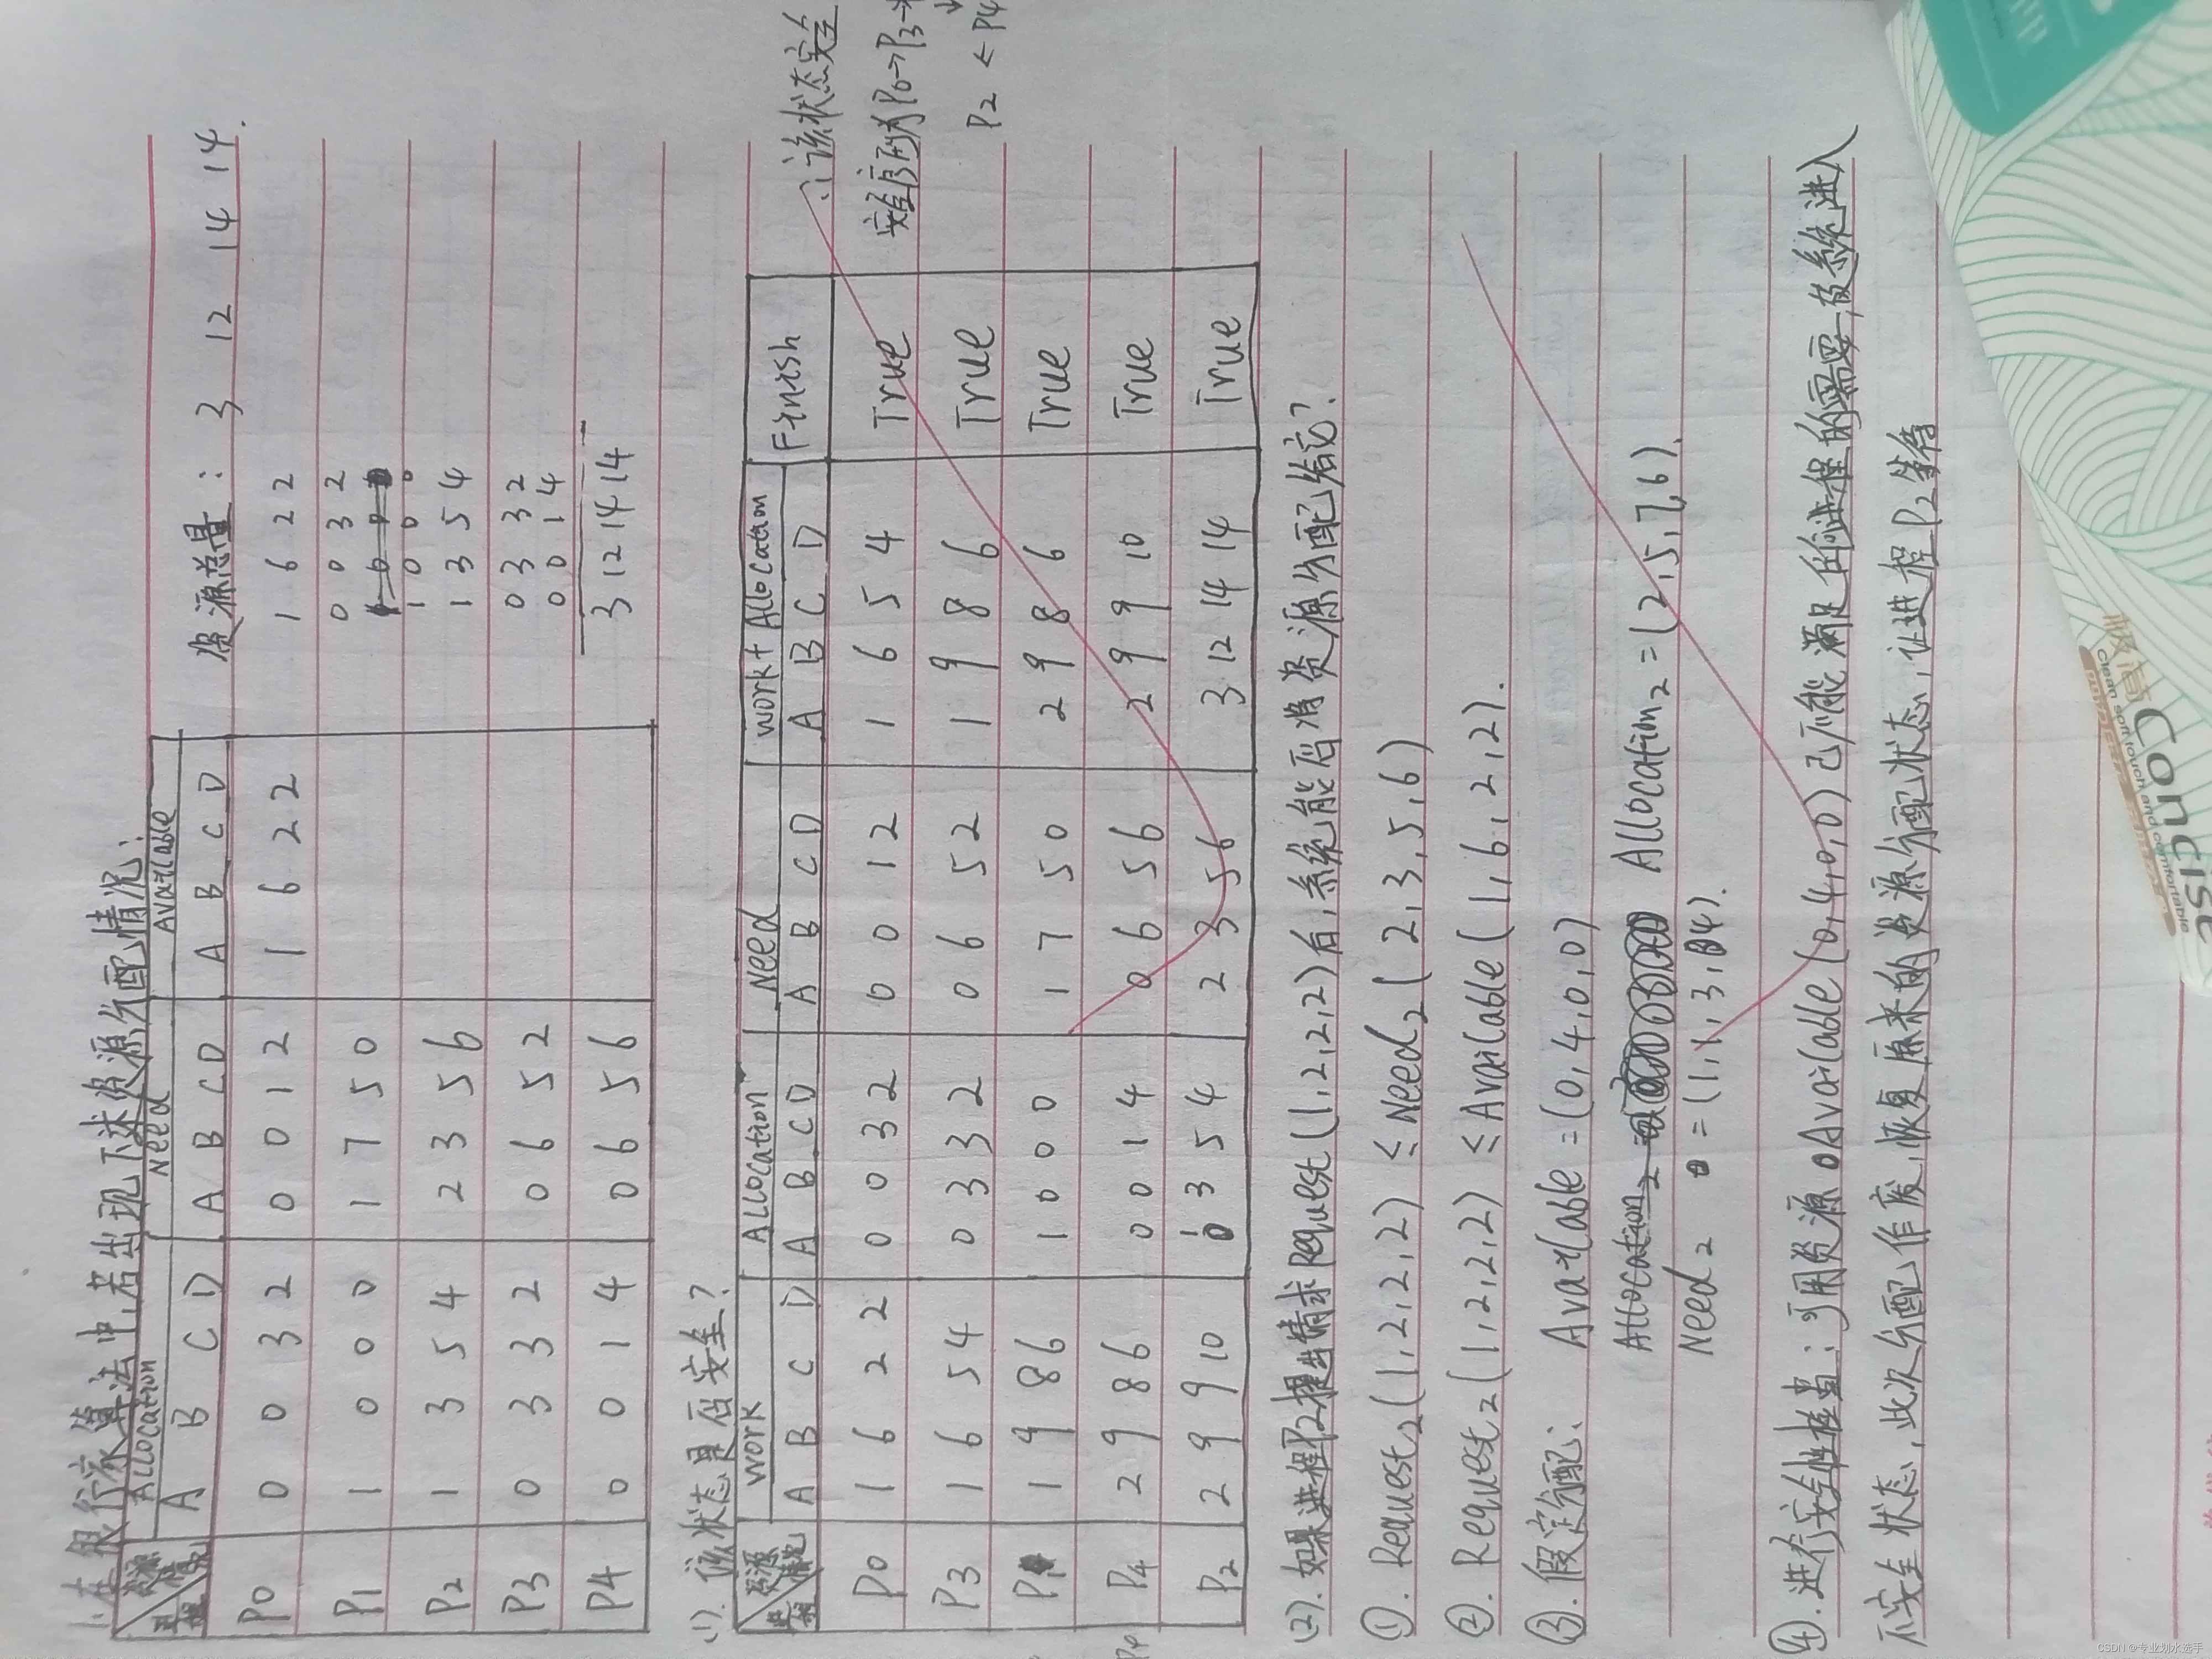 1.在银行家算法中,若出现下述资源分配情况:
资源 情况 进程 Allocation Need Available
A B C D A B C D A B C D
P0 0 0 3 2 0 0 1 2 1 6 2 2
P1 1 0 0 0 1 7 5 0
P2 1 3 5 4 2 3 5 6
P3 0 3 3 2 0 6 5 2
P4 0 0 1 4 0 6 5 6
资源总量: 3 12 14 14.
1 6 2 2
0 0 3 2
1 0 0 0
1 3 5 4
0 3 3 2
0 0 1 4
3 12 14 14
(1).该状态是否安全?
资源 情况 进程 Work Allocation Need Work+Allocation Finish
A B C D A B C D A B C D A B C D
P0 1 6 2 2 0 0 3 2 0 0 1 2 1 6 5 4 True
P3 1 6 5 4 0 3 3 2 0 6 5 2 1 9 8 6 True
P1 1 9 8 6 1 0 0 0 1 7 5 0 2 9 8 6 True
P4 2 9 8 6 0 0 1 4 0 6 5 6 2 9 9 10 True
P2 2 9 9 10 1 3 5 4 2 3 5 6 3 12 14 14 True
∴该状态安全
安全序列为P0→P3→
P2 ← P4
(2).如果进程P2提出请求Request(1,2,2,2)后,系统能否将资源分配给它?
①.Request2(1,2,2,2) ≤ Need2(2,3,5,6)
②.Request2(1,2,2,2) ≤ Available(1,6,2,2).
③.假定分配: Available=(0,4,0,0)
Allocation2 Allocation2=(2,5,7,6).
Need2 =(1,1,3,4).
④.进行安全性检查:可用资源Available(0,4,0,0)已不能满足任何进程的需要,故系统进入
不安全状态,此次分配作废,恢复原来的资源分配状态,让进程P2等待
P4
极简
clean soft touch and comfortable
Concise
CSDN @专业划水选手